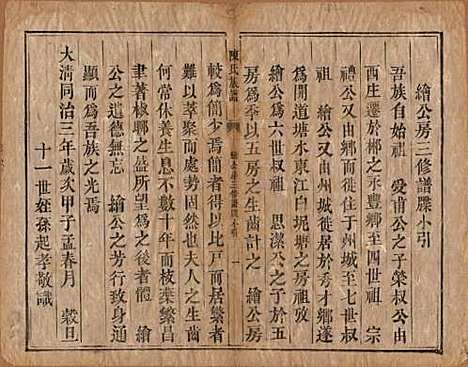 繪公房三修譜牒小引
吾族自始祖　愛甫公之子榮叔公由
西庄遷於郴之永豐鄉至四世祖　宗
禮公又由鄉而徙住于州城至七世叔
祖　繪公又由州城徙居於秀才鄉遂
爲開道塘水東江白坭塘之房祖攷
繪公爲六世叔祖　思潔公之子於五
房爲季以五房之生齒計之　繪公房
陳氏族譜
繪公房三修譜牒小引
一
較爲簡少簡者得以比戶而居
難以萃聚固然也夫人之生齒
何常休養生息不數十年而枝葉繁昌
聿著椒聊之盛所望爲之後者體　繪
公之道德無忘　繪公之芳行致身通
顯而爲吾族之光焉
大淸同治三年歲次甲子孟春月　穀旦
十一世姪孫起孝敬識